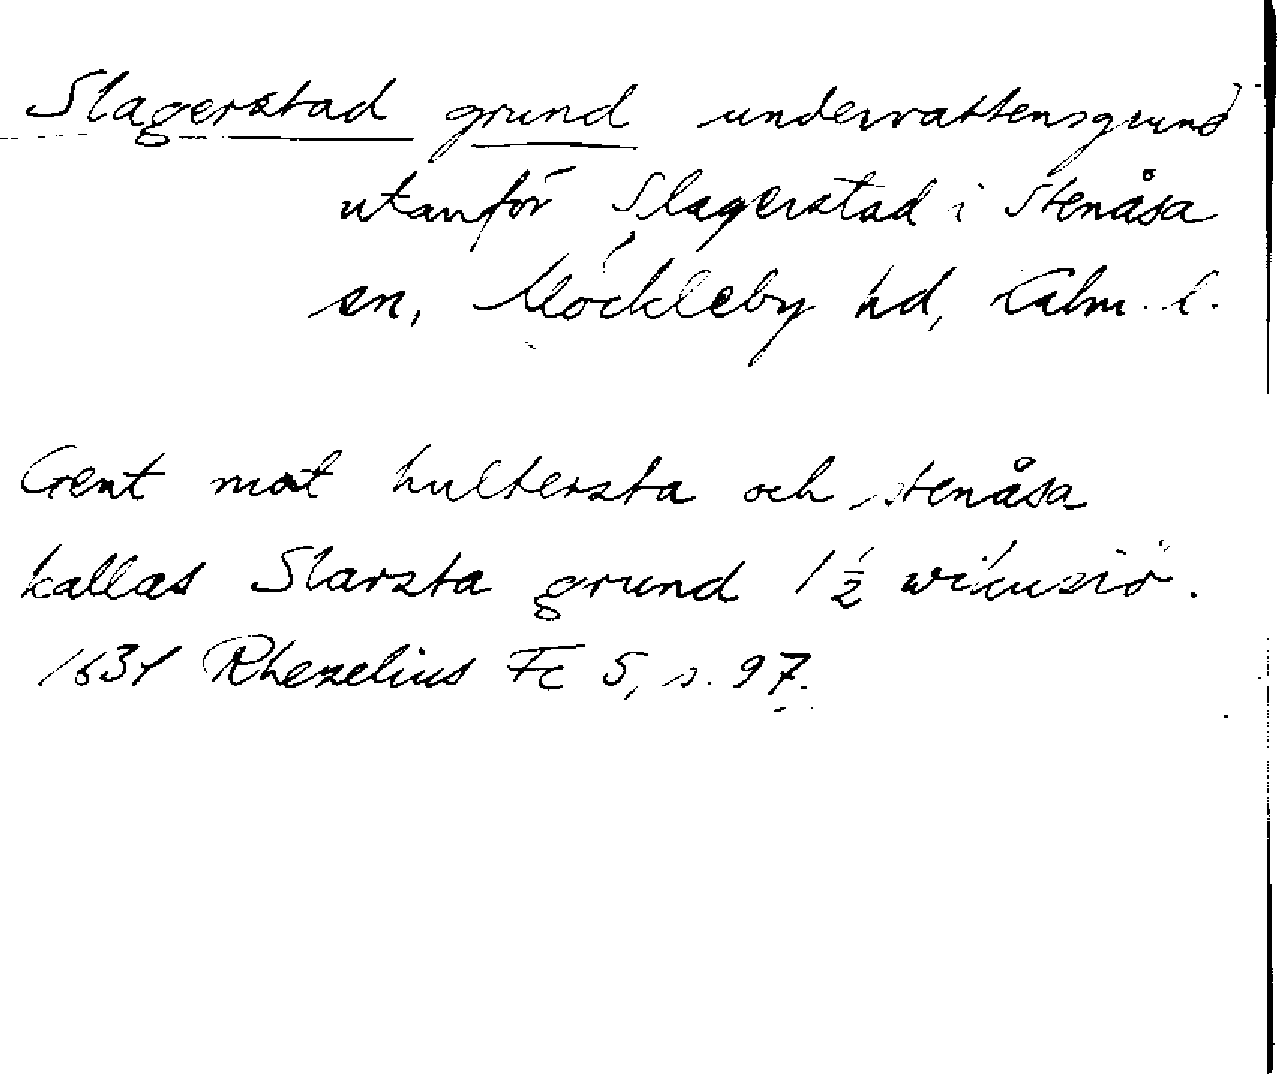 Slagerstad grund undervattensgrund
utanför Slagerstad i Stenåsa
sn, Möckleby hd, Kalm. l.
Gent mot hultersta och stenåsa
kallas Slarsta grund 1 ½ wikusiö.
Rhezelius Fc 5, s. 97.